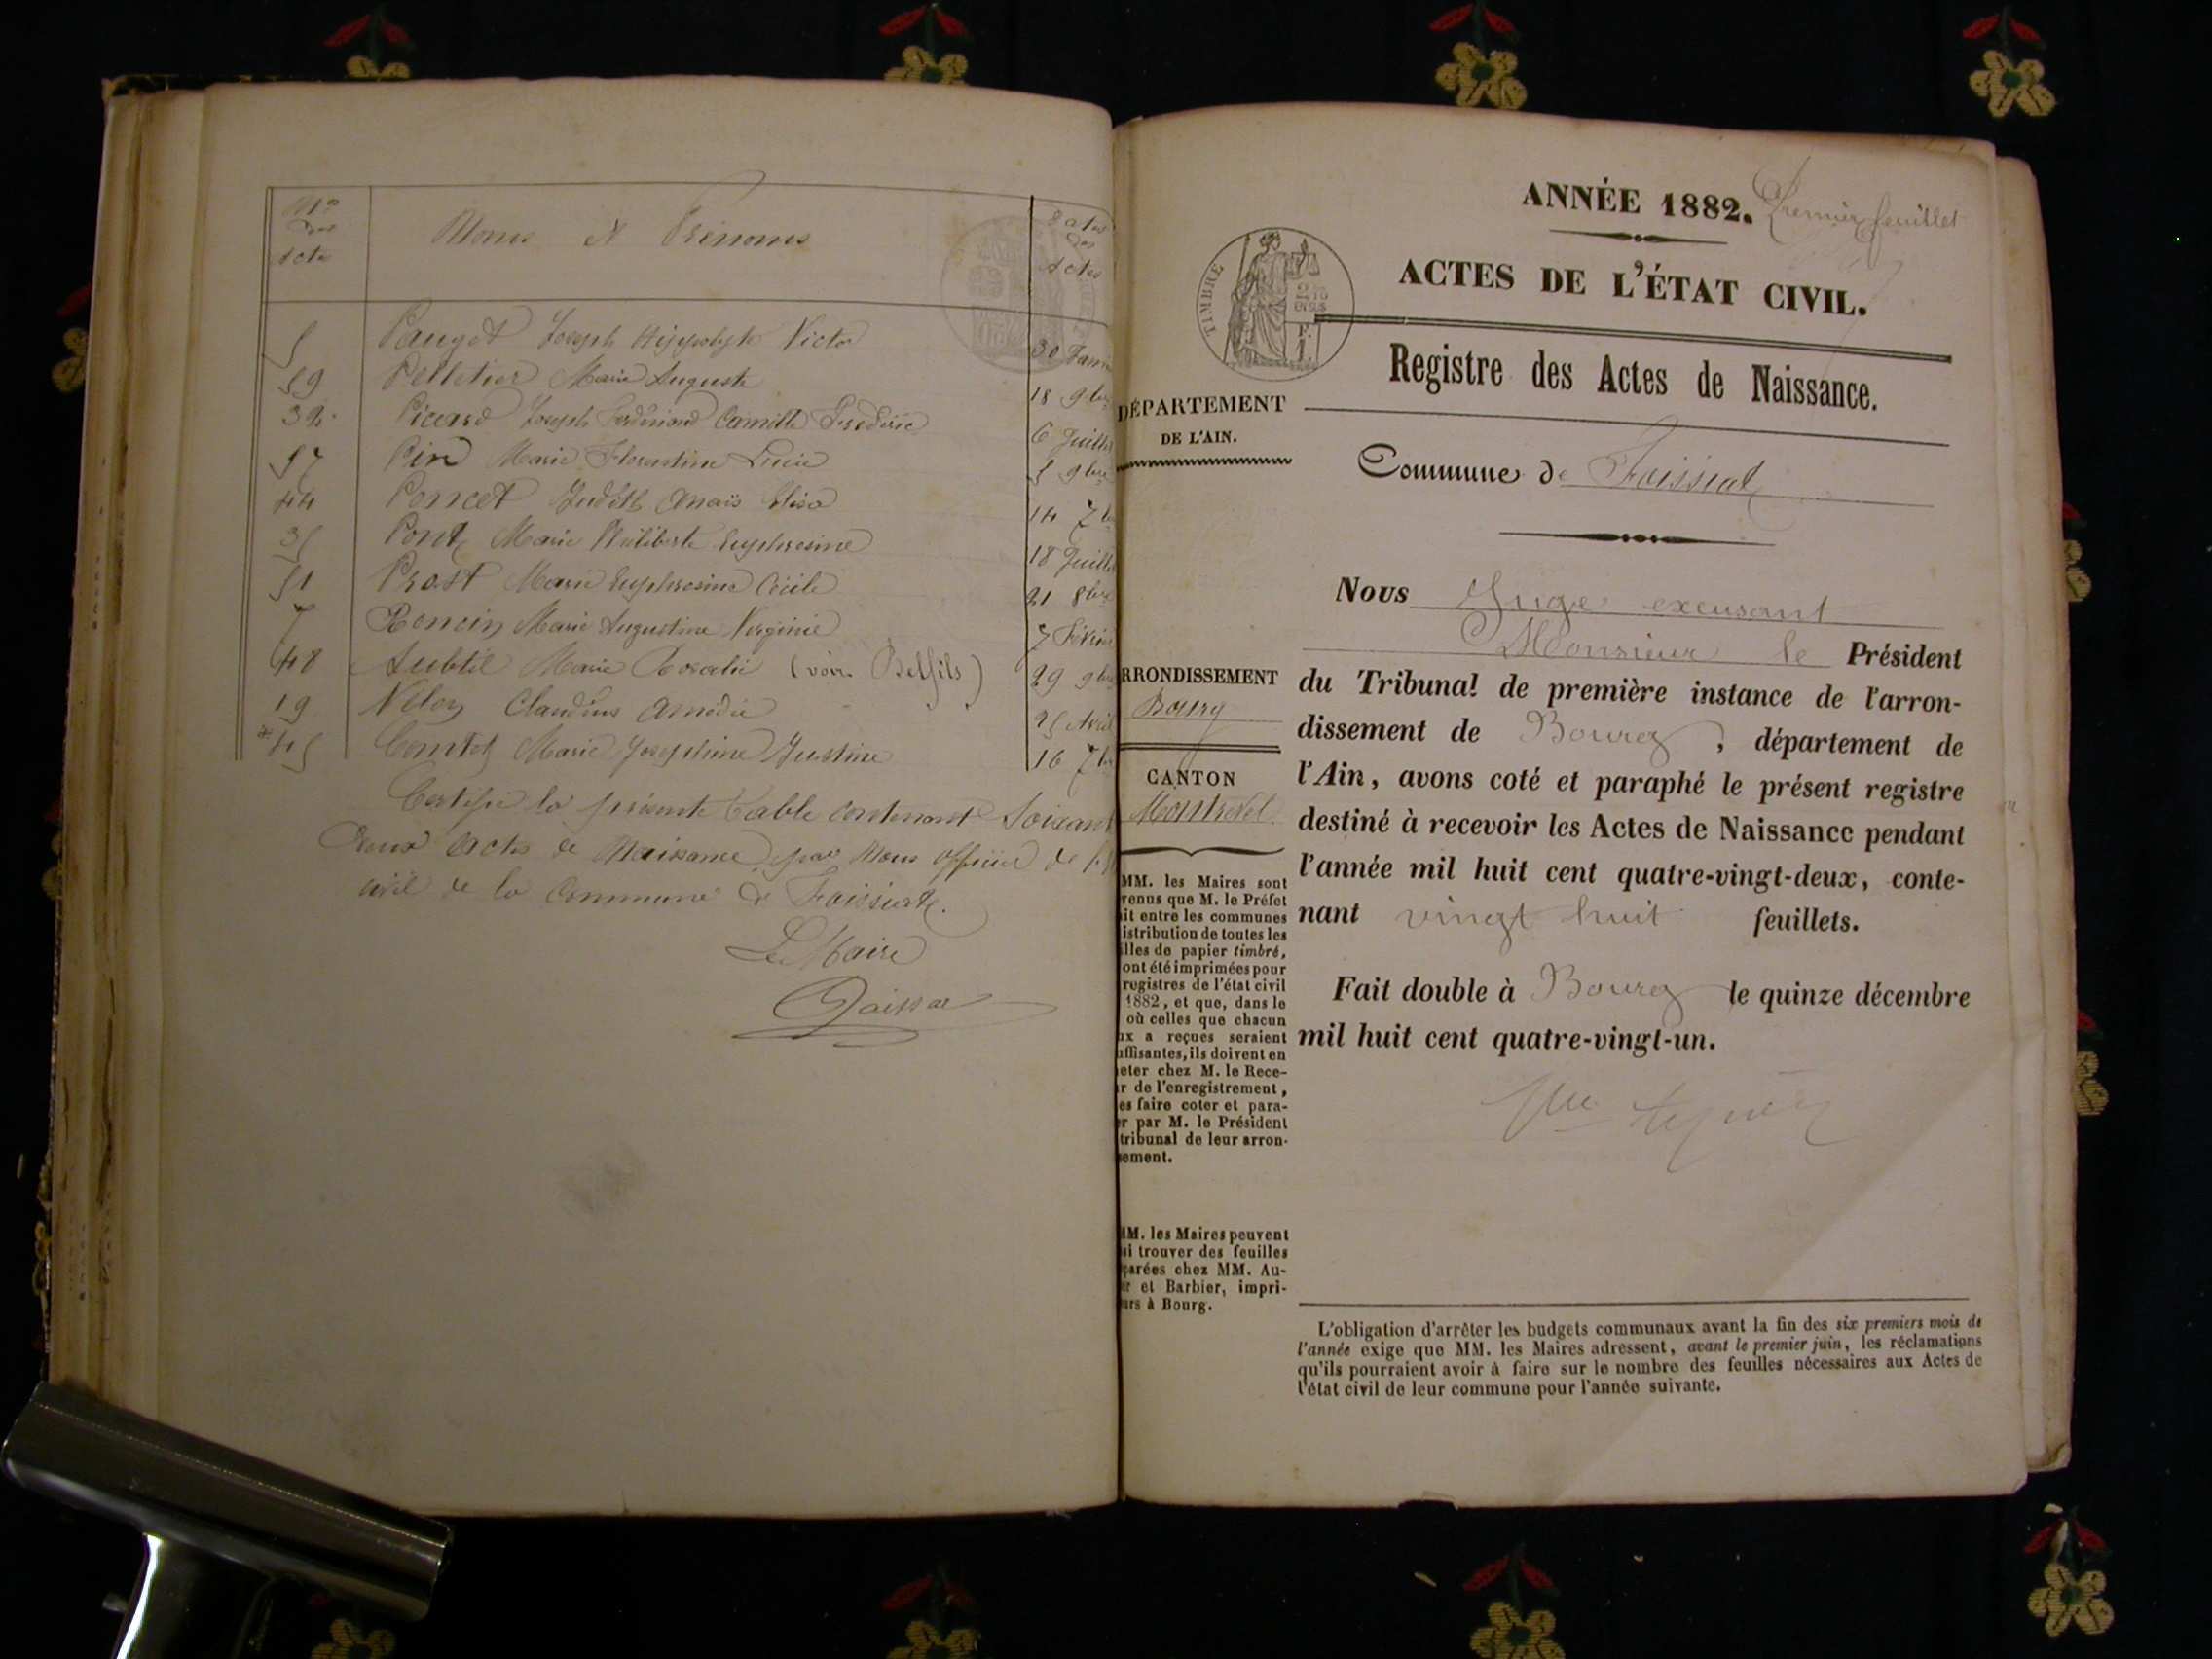 Nos des Actes
Noms et Prénoms
Dates des Actes
5 Pauget Joseph Hippolyte Victor 30 Janvi
59 Pelletier Marie Auguste 18 9bre
32 Picard Joseph Ferdinand Camille Frédéric 6 Juillet
57 Pin Marie Florentine Lucie 5 9bre
44 Poncet Judith Anaïs Elisa 14 7b
35 Pont Marie Philiberte Euphrosine 18 Juillet
51 Prost Marie Euphrosine Cécile 21 8bre
7 Marie Augustine Virginie 7 Février
48 Subtil Marie Rosalie (voir Belfils) 29 9bre
19 Velon Claudius Amédée 25 Avril
45 Comtet Marie Joséphine Justine 16 7b
Certifié la présente Table contenant Soixant
Deux Actes de Naissance, par Nous officier de l'
civil de la Commune de Foissiat.
Le Maire
ANNÉE 1882. Premier feuillet
ACTES DE L'ÉTAT CIVIL.
TIMBRE
2/10 EN SUS
F. 1.
Registre des Actes de Naissance.
DÉPARTEMENT
DE L'AIN.
Commune de Foissiat
Nous Juge excusant
Monsieur le Président
du Tribunal de première instance de l'arron-
dissement de Bourg, département de
l'Ain, avons coté et paraphé le présent registre
destiné à recevoir les Actes de Naissance pendant
l'année mil huit cent quatre-vingt-deux, conte-
nant vingt huit feuillets.
Fait double à Bourg le quinze décembre
mil huit cent quatre-vingt-un.
RRONDISSEMENT
Bourg
CANTON
Montrevel
MM. les Maires sont
venus que M. le Préfet
it entre les communes
istribution de toutes les
illes de papier timbré,
ont été imprimées pour
registres de l'état civil
1882, et que, dans le
où celles que chacun
ux a reçues seraient
uffisantes, ils doivent en
eter chez M. le Rece-
r de l'enregistrement,
es faire coter et para-
r par M. le Président
tribunal de leur arron-
ement.
MM. les Maires peuvent
si trouver des feuilles
parées chez MM. Au-
er et Barbier, impri-
urs à Bourg.
L'obligation d'arrêter les budgets communaux avant la fin des six premiers mois de
l'année exige que MM. les Maires adressent, avant le premier juin, les réclamations
qu'ils pourraient avoir à faire sur le nombre des feuilles nécessaires aux Actes de
l'état civil de leur commune pour l'année suivante.